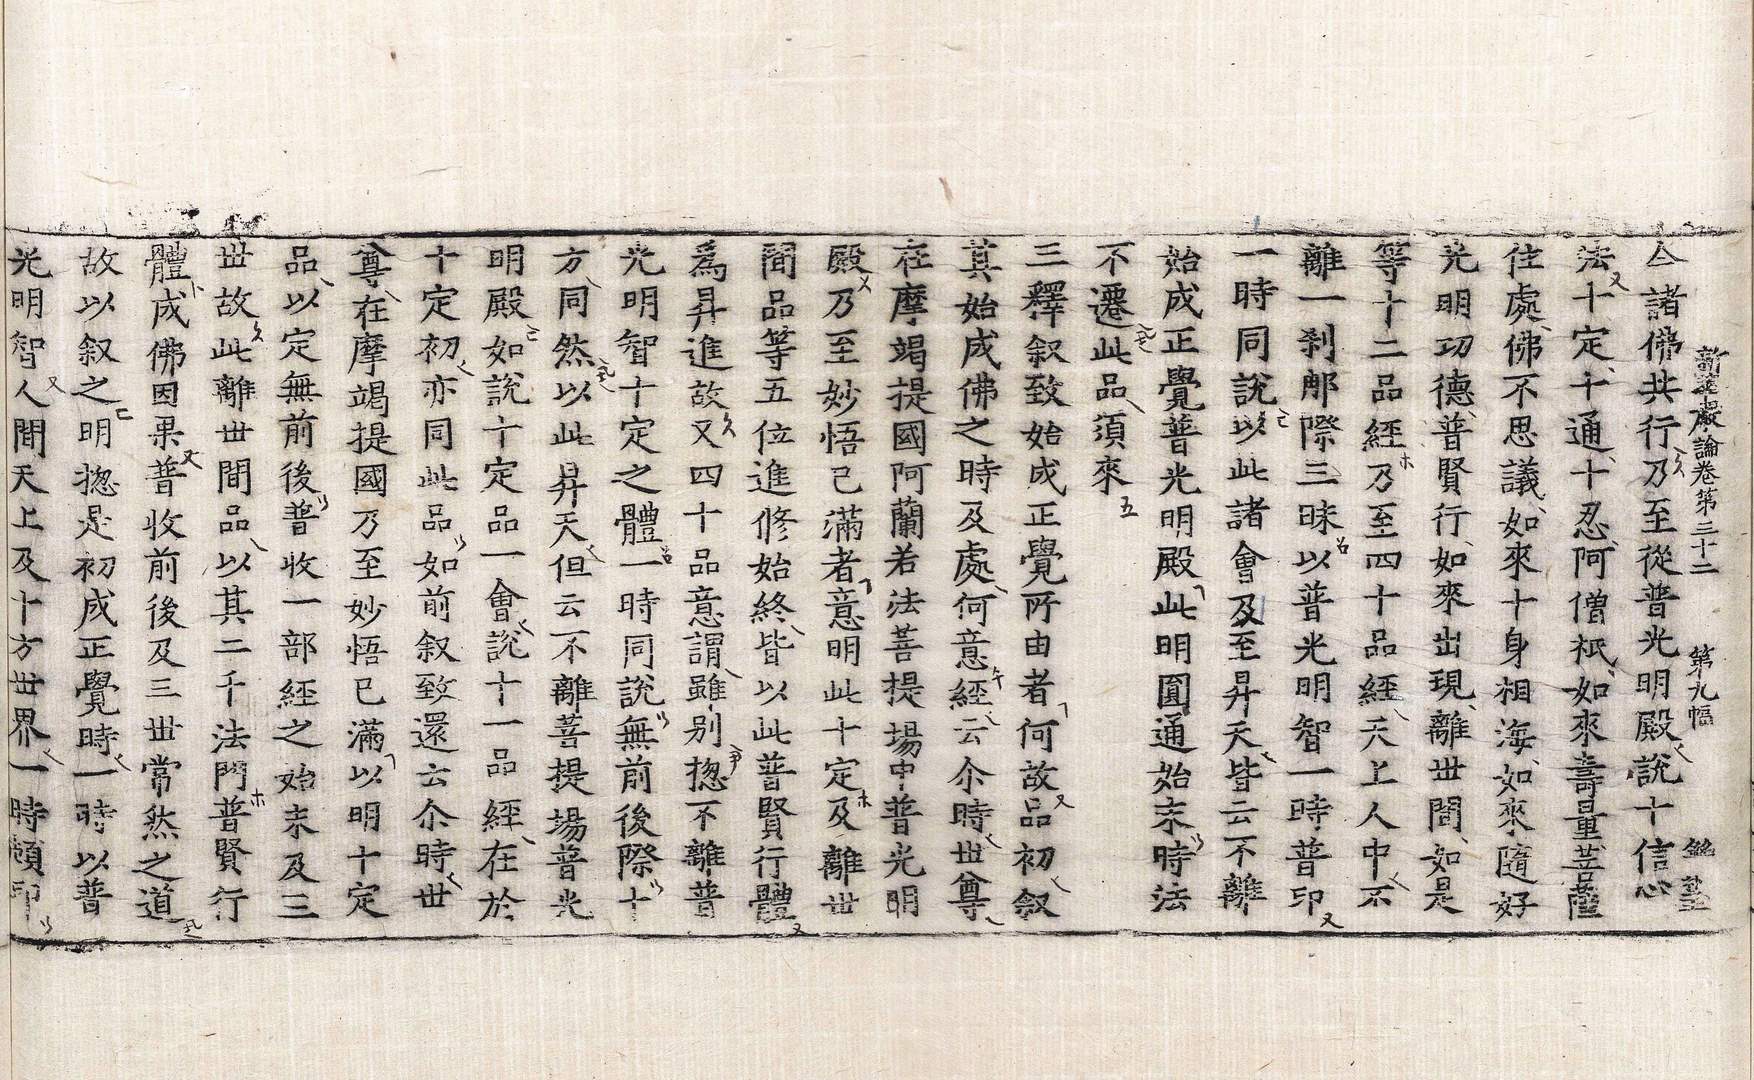 新華嚴論卷第三十二 第九幅
亼諸佛共行乃至從普光明殿說十信心
法十定十通十忍阿僧祇如來壽量菩薩
住處佛不思議如來十身相海如來隨好
光明功德普賢行如來出現離世間如是
等十二品經乃至四十品經天上人中不
離一刹那際三昧以普光明智一時普印
一時同說以此諸會及至昇天皆云不離
始成正覺普光明殿此明圓通始末時法
不遷此品須來
三釋叙致始成正覺所由者何故品初叙
其始成佛之時及處何意經云尒時世尊
在摩竭提國阿蘭若法菩提場中普光明
殿乃至妙悟已滿者意明此十定及離世
間品等五位進修始終皆以此普賢行體
爲昇進故又四十品意謂雖別揔不離普
光明智十定之體一時同說無前後際十
方同然以此昇天但云不離菩提場普光
明殿如說十定品一會說十一品經在於
十定初亦同此品如前叙致還云尒時世
尊在摩竭提國乃至妙悟已滿以明十定
品以定無前後普收一部經之始末及三
世故此離世間品以其二千法門普賢行
體成佛因果普收前後及三世常然之道
故以叙之明揔是初成正覺時一時以普
光明智人間天上及十方世界一時頓印